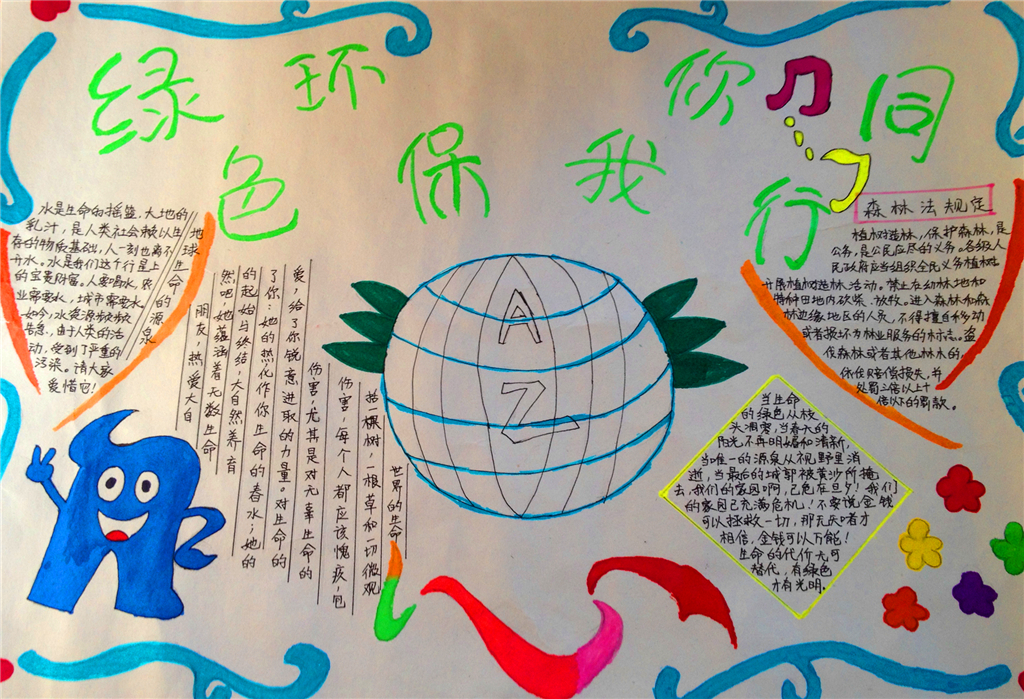 绿色环保
你我同行
地球生命的源泉
水是生命的摇篮，大地的
乳汁，是人类社会赖以生
存的物质基础，人一刻也离不
开水。水是我们这个行星上
的宝贵财富。人要喝水，农
业需要水，城市需要水。
如今，水资源频频
告急，由于人类的活
动，受到了严重的
污染。请大家
爱惜它！
朋友，热爱大自
然吧，她蕴涵着无数生命
的起始与终结，大自然养育
了你：她的热化作你生命的春水；她的
爱，给了你锐意进取的力量。对生命的
伤害，尤其是对无辜生命的
伤害，每个人都应该愧疚，包
括一棵树，一根草和一切微观
世界的生命
A
Z
森林法规定
植树造林，保护森林，是
公务，是公民应尽的义务。各级人
民政府应当组织全民义务植树
开展植树造林活动。禁止在幼林地和
特种田地内砍柴、放牧。进入森林和森
林边缘地区的人员，不得擅自移动
或者损坏为林业服务的标志。盗
伐森林或者其他林木的，
依法赔偿损失，并
处罚三倍以上十
倍以下的罚款。
当生命
的绿色从枝
头凋零，当春天的
阳光不再明媚和清新，
当唯一的源泉从视野里消
逝，当最后的城郭被黄沙所掩
去，我们的家园啊，已危在旦夕！我们
的家园已充满危机！不要说金钱
可以拯救一切，那无厌者才
相信，金钱可以万能！
生命的代价无可
替代，有绿色
才有光明。